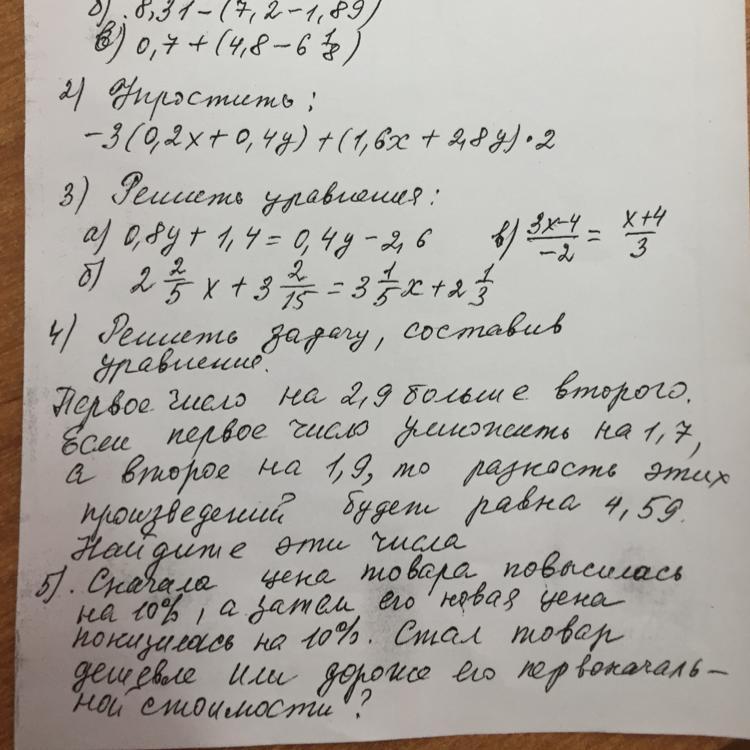 б) 8,31-(7,2-1,89)
в) 0,7+(4,8-6 1/8)
2) Упростить:
-3(0,2x+0,4y)+(1,6x+2,8y)·2
3) Решить уравнения:
а) 0,8y+1,4=0,4y-2,6 в) (3x-4)/(-2) = (x+4)/3
б) 2 2/5 x + 3 2/15 = 3 1/5 x + 2 1/3
4) Решить задачу, составив
уравнение.
Первое число на 2,9 больше второго.
Если первое число умножить на 1,7,
а второе на 1,9, то разность этих
произведений будет равна 4,59.
Найдите эти числа
5). Сначала цена товара повысилась
на 10%, а затем его новая цена
понизилась на 10%. Стал товар
дешевле или дороже его первоначаль-
ной стоимости?